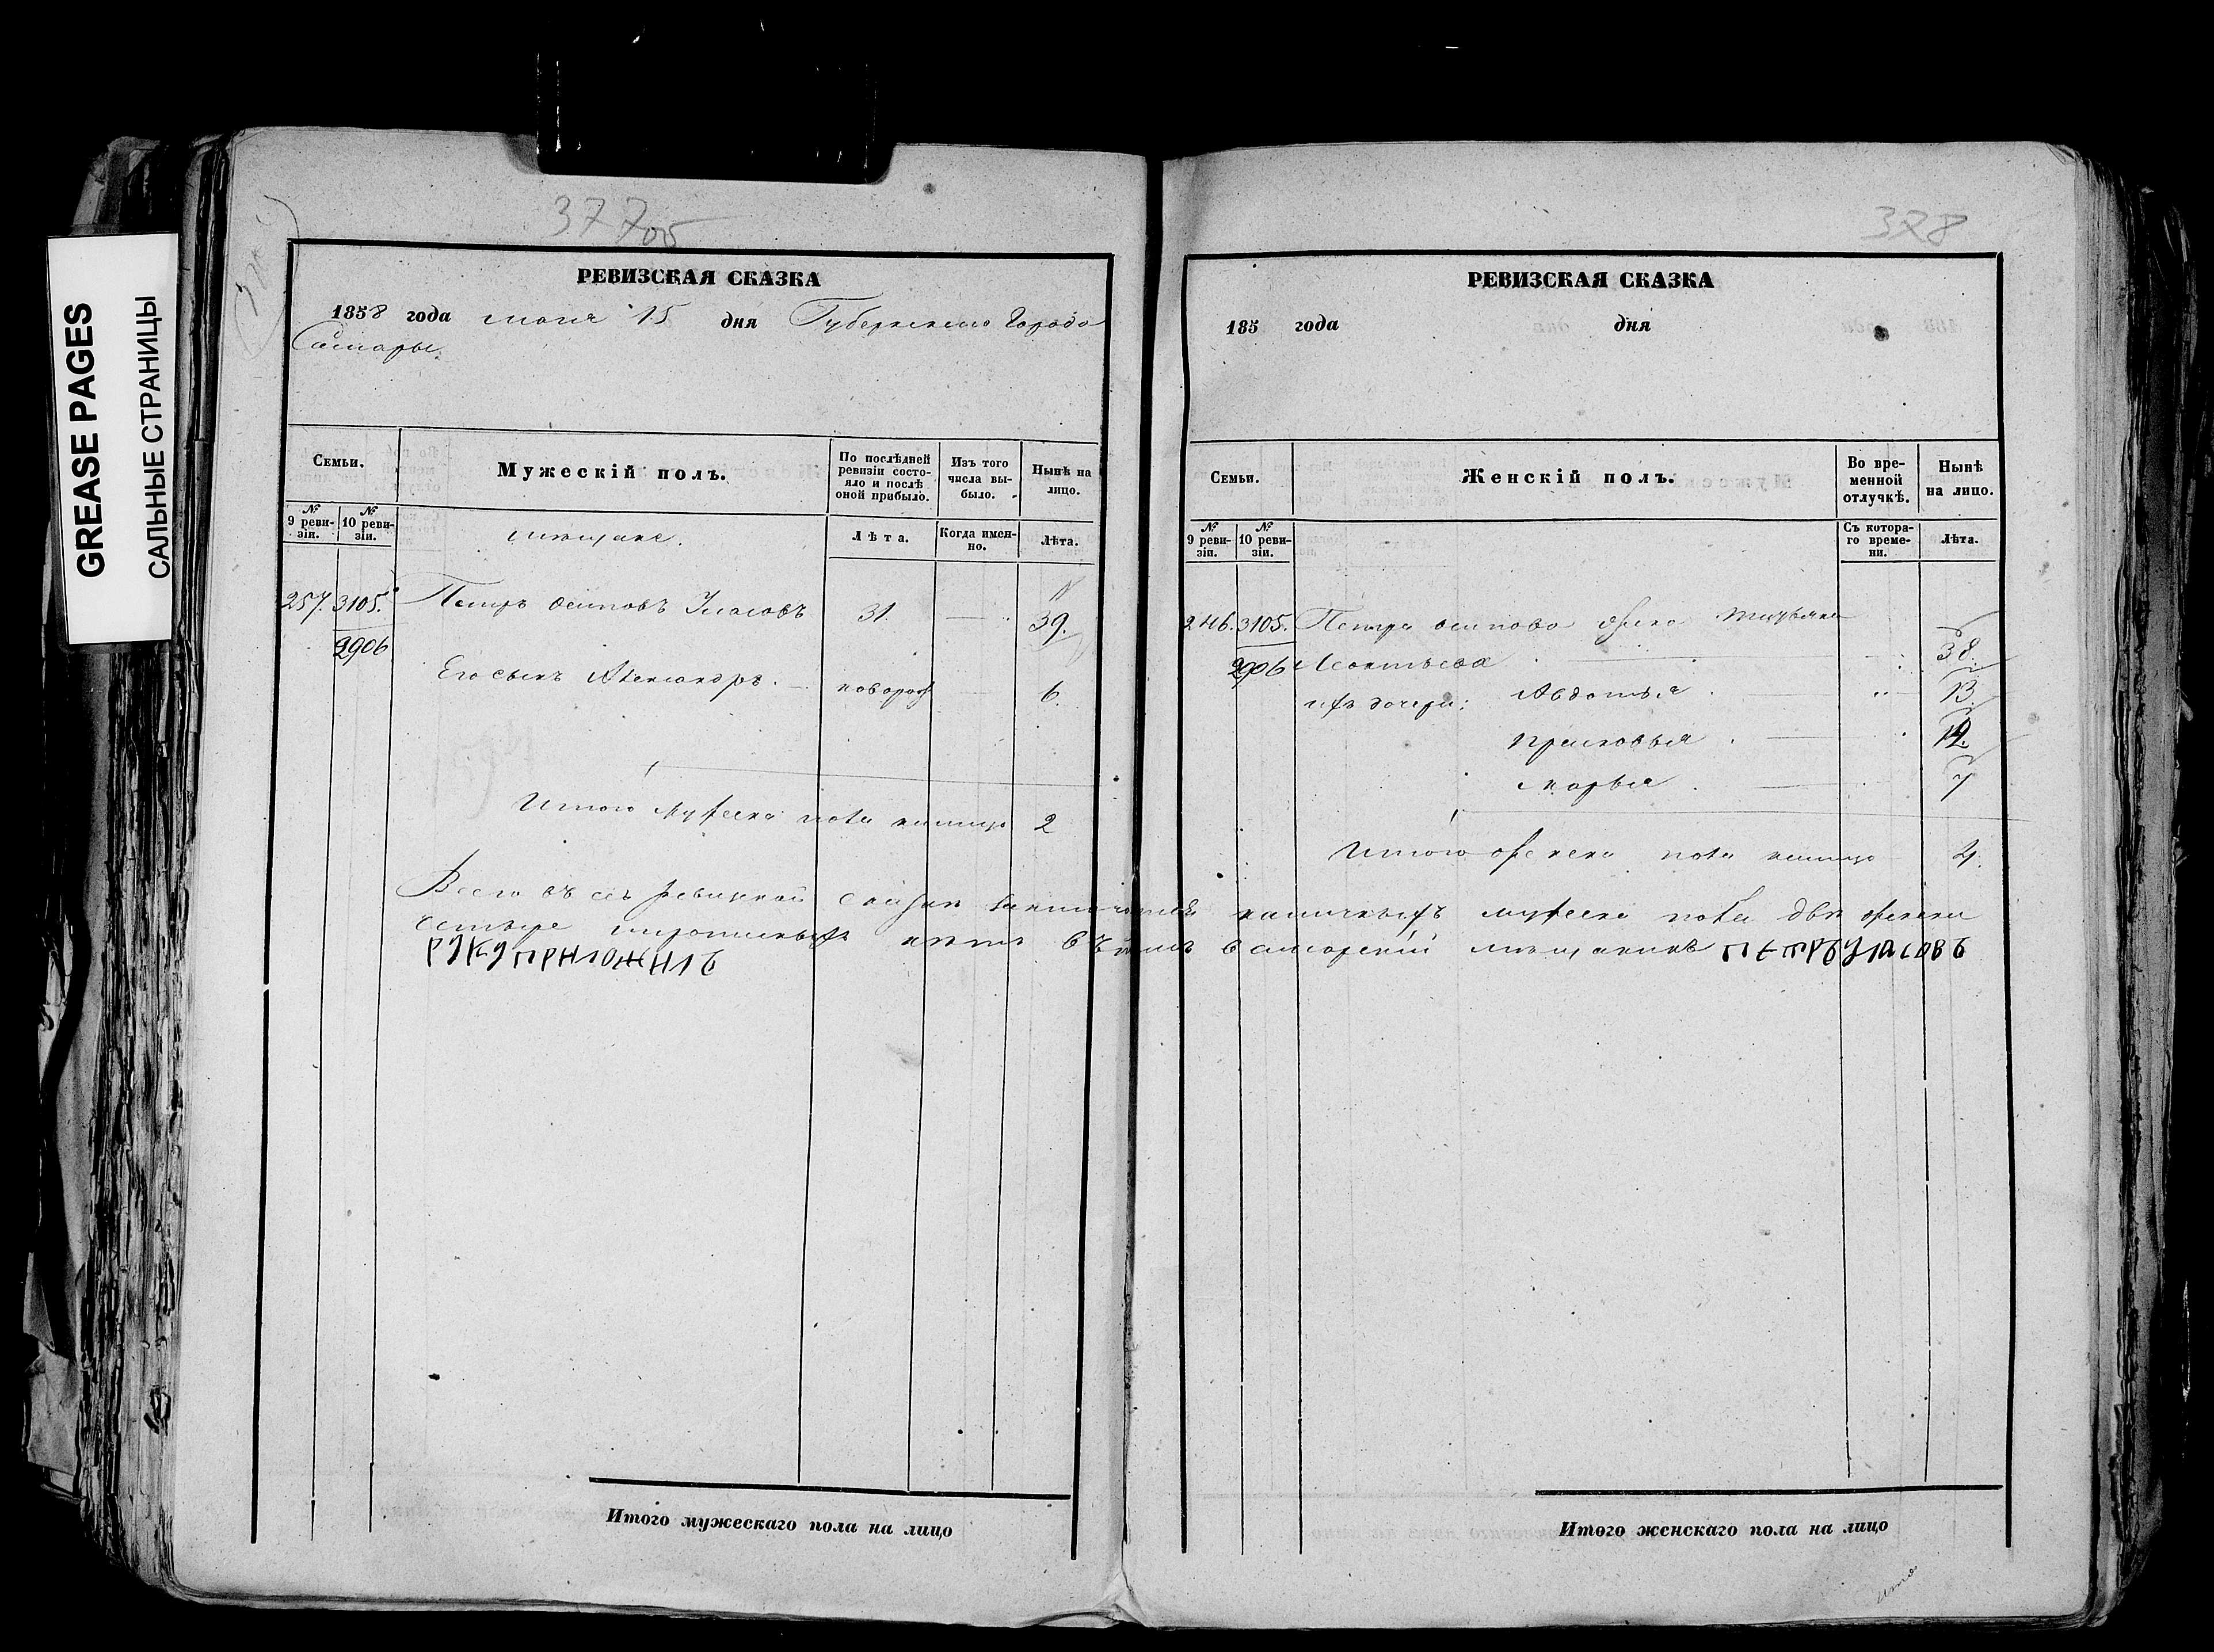 GREASE PAGES
САЛЬНЫЕ СТРАНИЦЫ
377об
РЕВИЗСКАЯ СКАЗКА
1858 года 15 дня Губернскаго Города
Самары.
Семьи.
Мужескій полъ.
По послѣдней ревизіи состояло и послѣ оной прибыло.
Изъ того числа выбыло.
Нынѣ на лицо.
№ 9 ревизіи.
№ 10 ревизіи.
мѣщане.
Лѣта.
Когда именно.
Лѣта.
257. 3105. Петръ Осиповъ Власовъ 31. — 39.
2906
Его сынъ Александръ. новорож 6.
Итого мужеска пола налицо 2
378
РЕВИЗСКАЯ СКАЗКА
185 года дня
Семьи.
Женскій полъ.
Во временной отлучкѣ.
Нынѣ на лицо.
№ 9 ревизіи.
№ 10 ревизіи.
Съ котораго времени.
Лѣта.
246. 3105. Петра Осипова жена
2906 Леонтьева 38.
ихъ дочери: Авдотья 13
Прасковья 12.
Марья 7
Итого женска пола налицо 4.
Всего въ сей ревизской сказки наличныхъ мужеска пола два женска
четыре нѣтъ въ томъ самарскій мѣщанинъ ПЕТРЪ
РУКУ ПРИЛОЖИЛЪ
Итого мужескаго пола на лицо
Итого женскаго пола на лицо